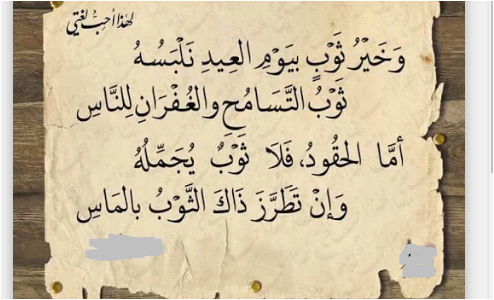 لهذا أحب لغتي
وَخَيْرُ ثَوْبٍ بِيَوْمِ العِيدِ نَلْبَسُهُ
ثَوْبُ التَّسَامُحِ والغُفْرَانِ لِلنَّاسِ
أمَّا الحَقُودُ، فَلَا ثَوْبٌ يُجَمِّلُهُ
وَإنْ تَطَرَّزَ ذَاكَ الثَّوْبُ بالمَاسِ